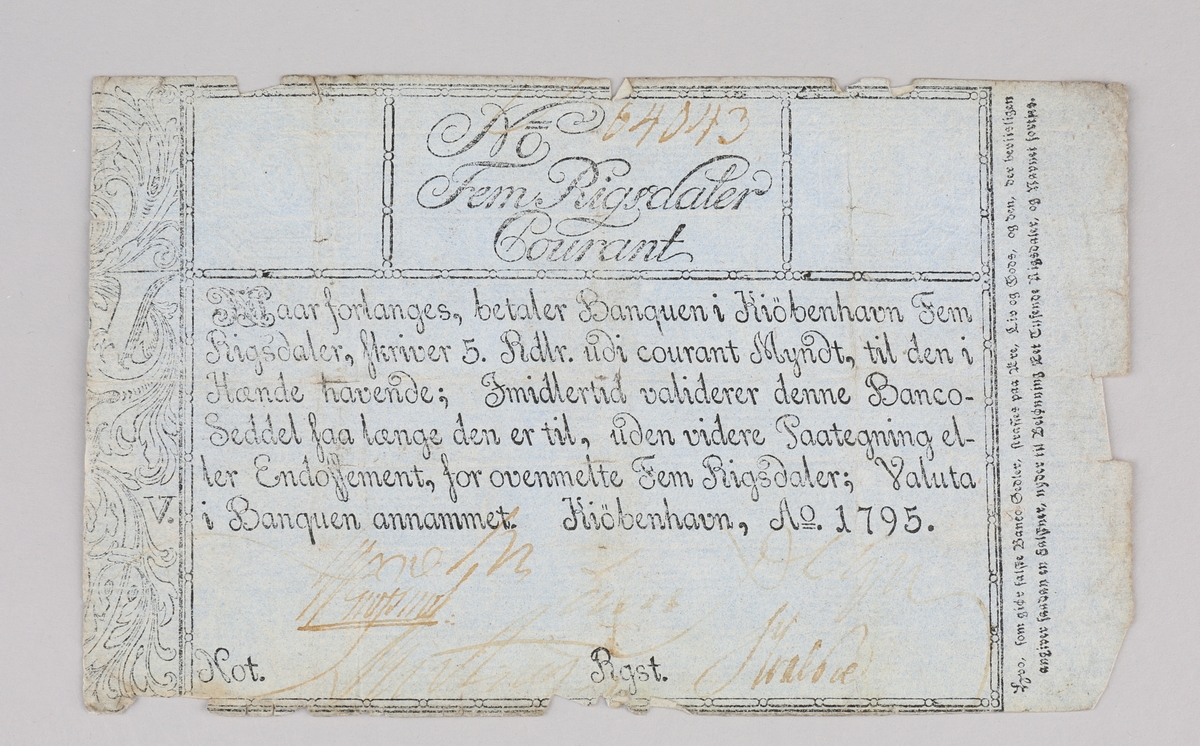 No 64043
Fem Rigsdaler
Courant
Naar forlanges, betaler Banquen i Kiöbenhavn Fem
Rigsdaler, skriver 5. Rdlr. udi courant Myndt, til den i
Hænde havende; Imidlertid validerer denne Banco-
Seddel saa længe den er til, uden videre Paategning el-
ler Endossement, for ovenmelte Fem Rigsdaler; Valuta
i Banquen annammet. Kiöbenhavn, Ao. 1795.
V.
Not. Rgst.
Hvo, som giør falske Banco-Sedler, straffes paa Ære, Liv og Gods, og den, der beviisligen
angiver saadan en Falskner, nyder til Belønning Eet Tusinde Rigsdaler, og Navnet forties.